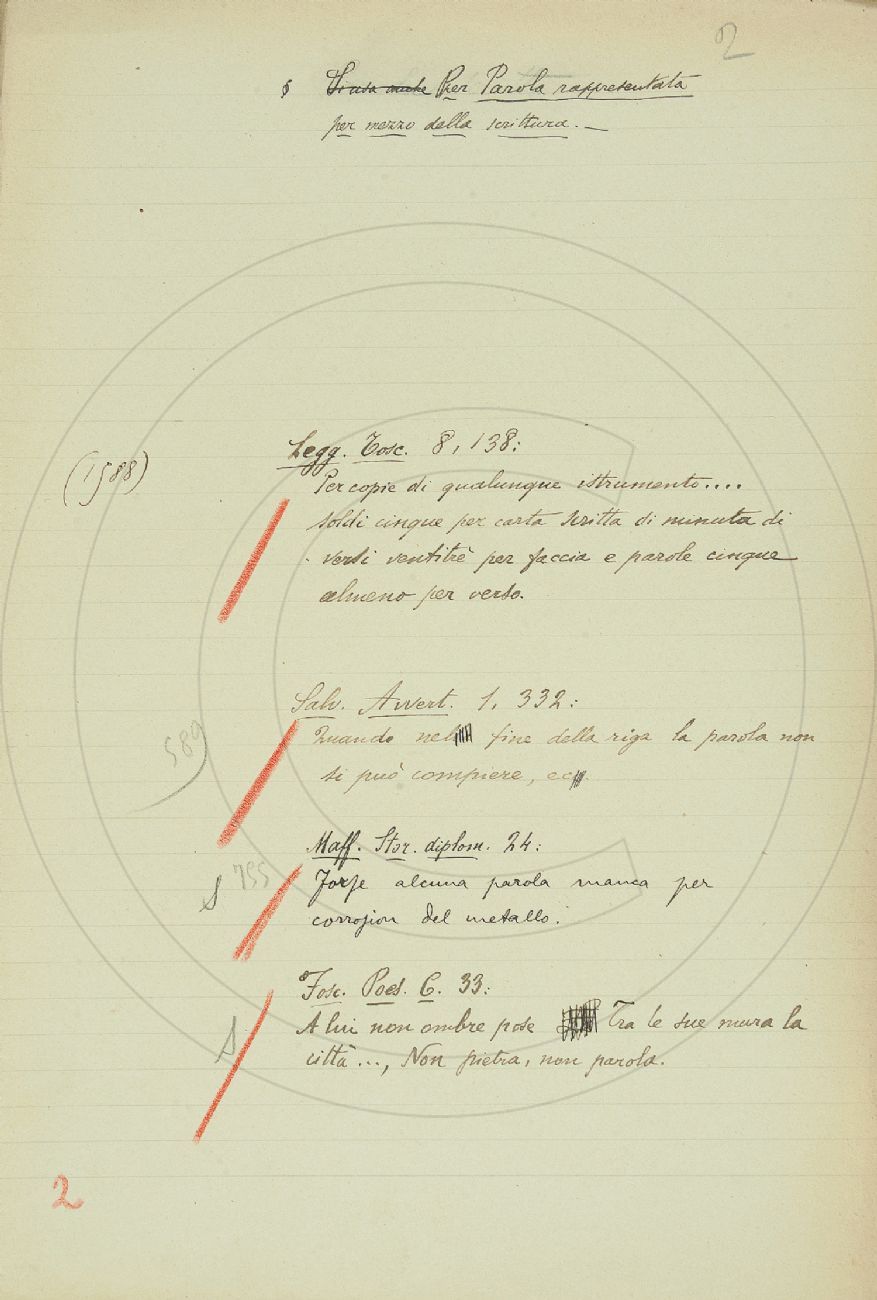 2
§ Si usa anche Per Parola rappresentata
per mezzo della scrittura. —
Legg. Tosc. 8, 138:
(1588)
Per copie di qualunque istrumento....
soldi cinque per carta scritta di minuta di
versi ventitrè per faccia e parole cinque
almeno per verso.
Salv. Avvert. 1, 332:
589
Quando nel fine della riga la parola non
si può compiere, ec.
Maff. Stor. diplom. 24:
S 755
Forse alcuna parola manca per
corrosion del metallo.
Fosc. Poes. C. 33:
S
A lui non ombre pose Tra le sue mura la
città ..., Non pietra, non parola.
2